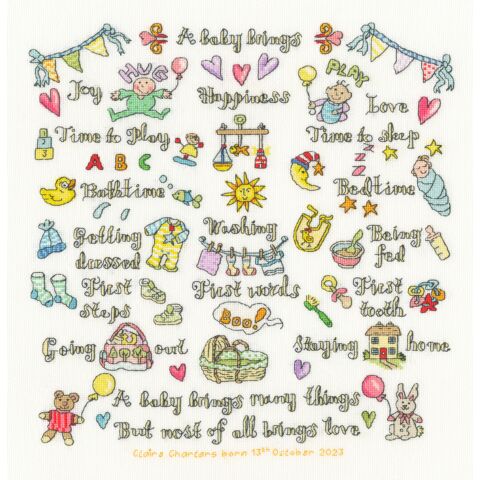 A baby brings
HUG
PLAY
Joy Happiness Love
Time to Play Time to sleep
A B C
Bathtime Bedtime
Getting dressed Washing Being fed
First steps First words First tooth
Boo!
Going out Staying home
A baby brings many things
But most of all brings love
Claire Charters born 13th October 2023